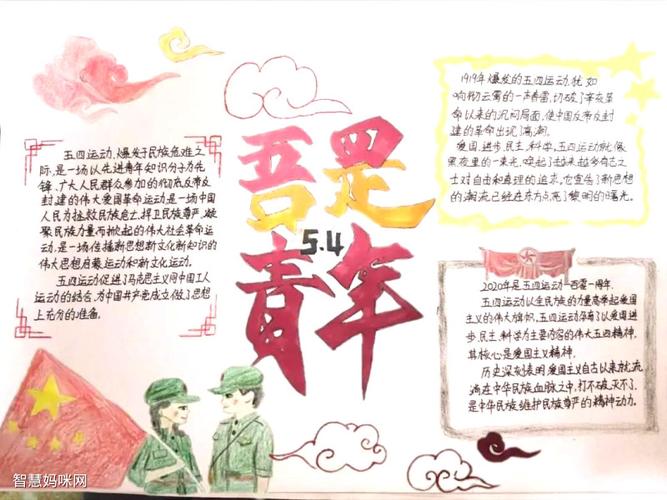 吾是
5.4
青年
五四运动,爆发于民族危难之
际,是一场以先进青年知识分子为先
锋,广大人民群众参加的彻底反帝反
封建的伟大爱国革命运动,是一场中国
人民为拯救民族危亡、捍卫民族尊严、凝
聚民族力量而掀起的伟大社会革命运
动,是一场传播新思想新文化新知识的
伟大思想启蒙运动和新文化运动。
五四运动促进了马克思主义同中国工人
运动的结合,为中国共产党成立做了思想
上充分的准备。
1919年爆发的五四运动,犹如
响彻云霄的一声春雷,切破了辛亥革
命以来的沉闷局面,使中国反帝反封
建的革命出现了高潮。
爱国、进步、民主、科学,五四运动就像
黑夜里的一束光,唤起了越来越多有志之
士对自由和真理的追求,它宣告了新思想
的潮流已经在东方点亮了黎明的曙光。
2020年是五四运动一百零一周年.
五四运动以全民族的力量高举起爱国
主义的伟大旗帜,五四运动孕育了以爱国进
步、民主、科学为主要内容的伟大五四精神,
其核心是爱国主义精神。
历史深刻表明,爱国主义自古以来就流
淌在中华民族血脉之中,打不破、灭不了,
是中华民族维护民族尊严的精神动力.
智慧妈咪网